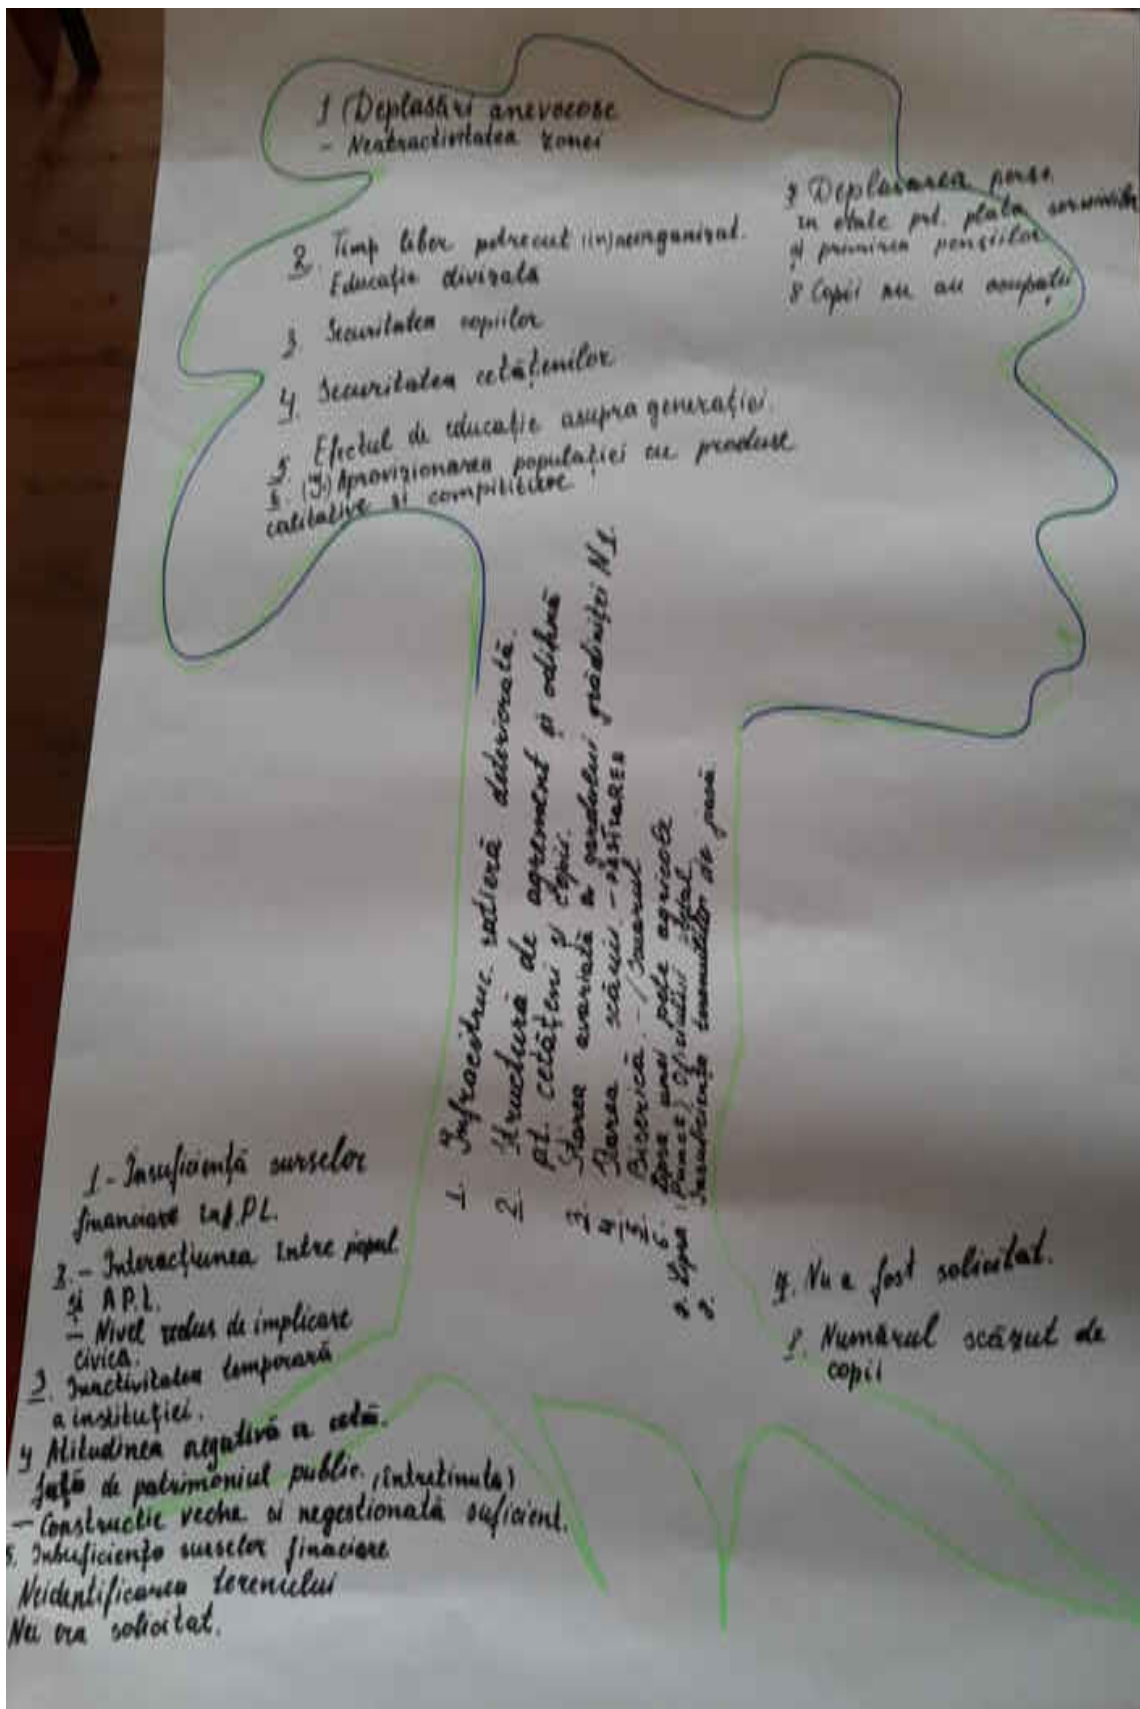 1 (Deplasări anevoeose
- Neatractivitatea zonei
2. Timp liber petrecut (in)neorganizat.
Educație divizată
3. Securitatea copiilor
4. Securitatea cetățenilor
5. Efectul de educație asupra generației.
6. Aprovizionarea populației cu produse
calitative și
7 Deplasarea perso.
în etate pt. plata serviciilor
și primirea pensiilor
8 Copii nu au ocupație
1. Infrastruc. rutieră deteriorată.
2. Structură de agrement și odihnă
pt. cetățeni și copii.
3. Starea avariată a gardului grădiniței N1.
4. Starea scării.
5. Biserică -
6. Lipsa unei piețe agricole
7. Lipsa Oficiului poștal
8. Insuficiența terenurilor de joacă
1 - Insuficiență surselor
financiare
2. - Interacțiunea între popul.
și A P.L.
- Nivel redus de implicare
civică.
3. Inactivitatea temporară
a instituției.
4 Atitudinea negativă a cetă.
față de patrimoniul public. (întreținută)
- Construcție veche și negestionată suficient.
5. Insuficiența surselor finaciare
Neidentificarea terenului
Nu era solicitat.
7. Nu a fost solicitat.
8. Numărul scăzut de
copii